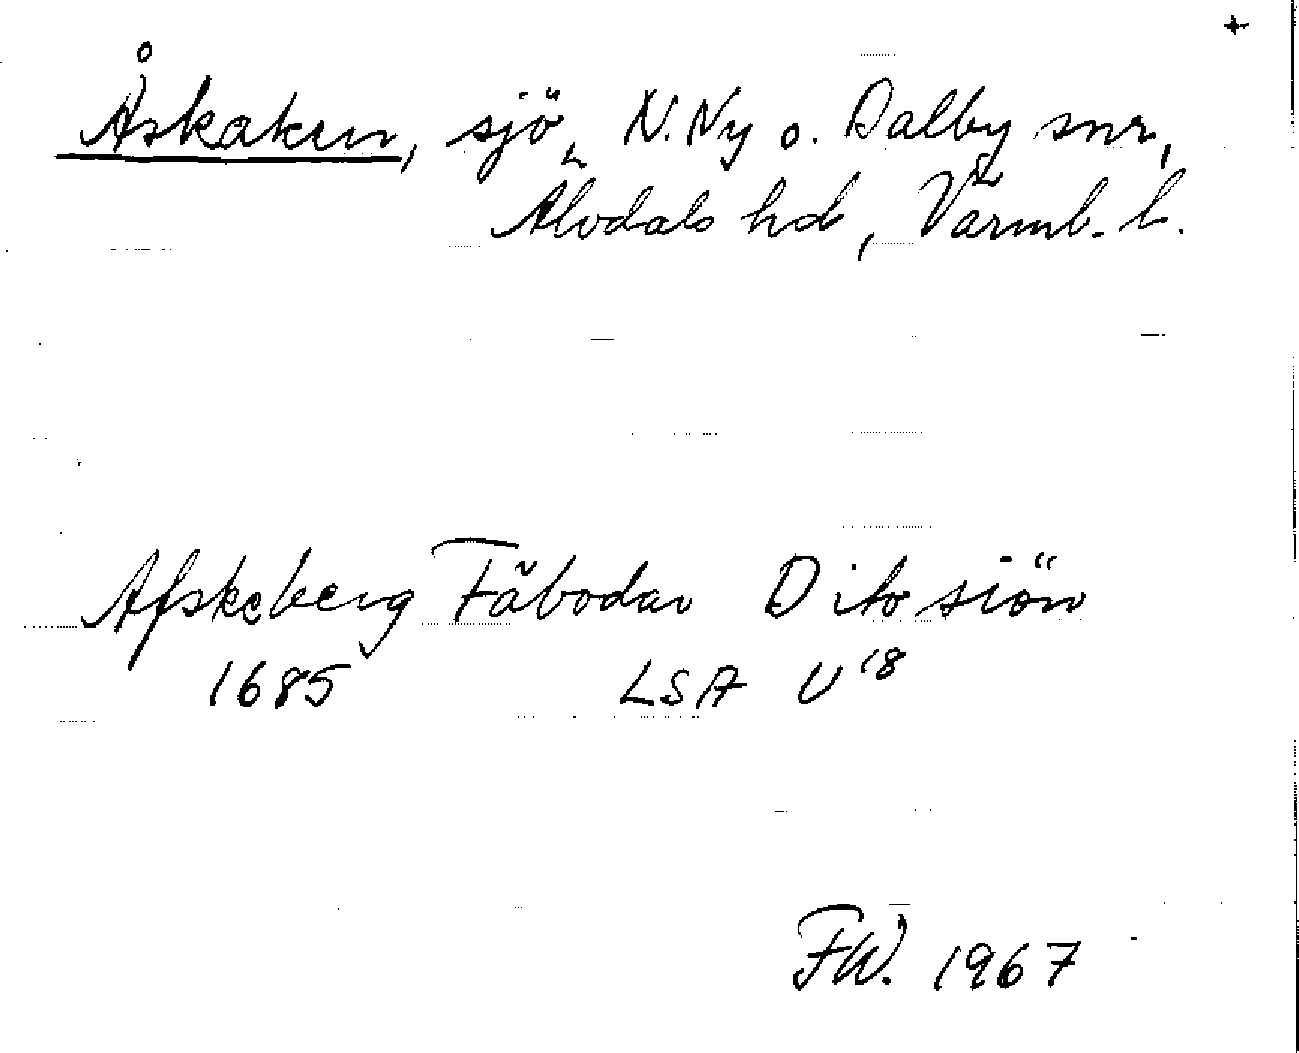 +
Åskaken, sjö, N. Ny o. Dalby snr,
Älvdals hd, Värml. l.
Afskeberg Fäbodar Dito siön
1685 LSA U 18
FW. 1967